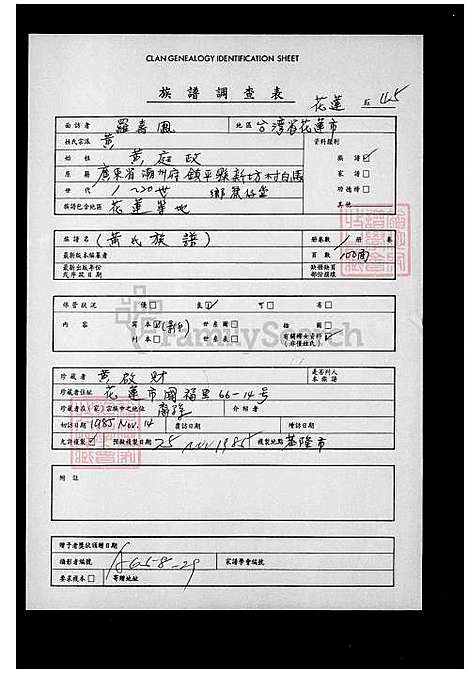 CLAN GENEALOGY IDENTIFICATION SHEET
族譜調查表
花蓮 45
面訪者 羅壽鳳 地區 台湾省花蓮市
姓氏宗派 黃 資料類別
始祖 黃庭政 族譜 ☑
原籍 廣東省潮州府鎮平縣新坊村白馬 家譜 □
世代 1-20世 功德榜 □
族譜包含地區 花蓮等地 其他
族譜名 (黃氏族譜) 冊卷數 1 冊 卷
最新版本編纂者 頁數 100面
最新出版年份 缺冊缺頁
或序跋日期 部份損壞
保管狀況 優□ 良☑ 可□ 劣□
內容 寫本☑ 世系圖□ 插圖□
刊本□ 世系表□ 有關婦女資料
FamilySearch
珍藏者 黃啟財 是否列入本族譜
珍藏者住址 花蓮市國福里66-14号
珍藏者在(家)宗族中之地位 裔孫 介紹者
初訪日期 1985 Nov. 14 覆訪日期 增訪日期
允許複製☑ 預擬複製日期 25 Nov 1985 複製地點 基隆市
附註
贈予者獎狀頒贈日期
攝影者編號 家譜學會編號
要求複本□ 寄贈地址